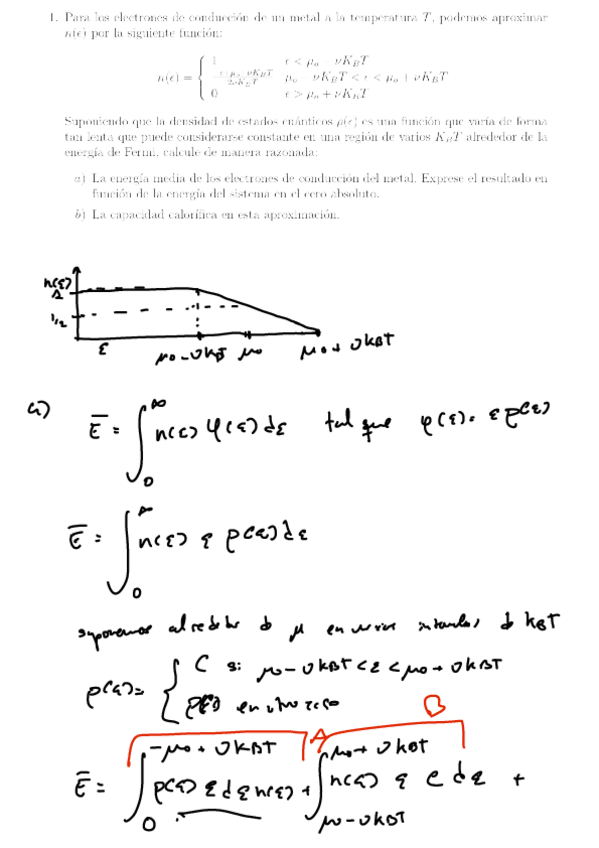 1. Para los electrones de conducción de un metal a la temperatura T, podemos aproximar
n(ϵ) por la siguiente función:
n(ϵ) = { 1 ϵ < μ₀ − νK_BT
−ϵ+μ₀+νK_BT / 2νK_BT μ₀ − νK_BT < ϵ < μ₀ + νK_BT
0 ϵ > μ₀ + νK_BT
Suponiendo que la densidad de estados cuánticos ρ(ϵ) es una función que varía de forma
tan lenta que puede considerarse constante en una región de varios K_BT alrededor de la
energía de Fermi, calcule de manera razonada:
a) La energía media de los electrones de conducción del metal. Exprese el resultado en
función de la energía del sistema en el cero absoluto.
b) La capacidad calorífica en esta aproximación.
n(ε)
1
1/2
ε μ₀-νk_BT μ₀ μ₀+νk_BT
a) Ē = ∫₀^∞ n(ε) φ(ε) dε tal que φ(ε) = ε ρ(ε)
Ē = ∫₀^∞ n(ε) ε ρ(ε) dε
suponemos alrededor de μ en varios intervalos de k_BT
ρ(ε) = { C si μ-νk_BT < ε < μ₀+νk_BT
ρ(ε) en otro caso
A B
Ē = ∫₀^{-μ₀+νk_BT} ρ(ε) ε dε n(ε) + ∫_{μ₀-νk_BT}^{μ₀+νk_BT} n(ε) ε C dε +